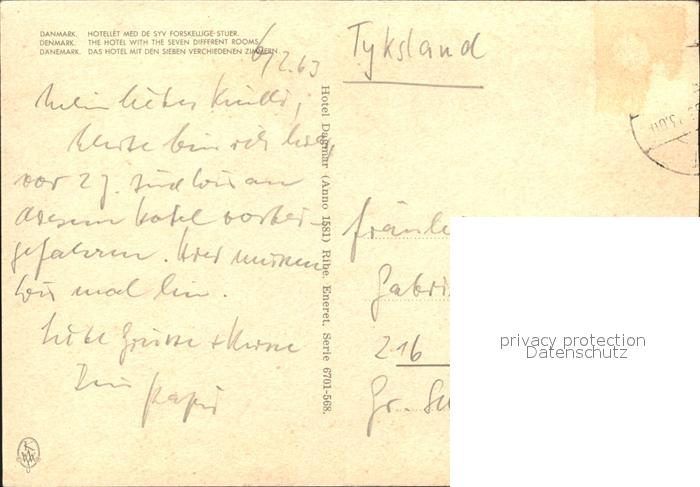 DANMARK. HOTELLET MED DE SYV FORSKELLIGE STUER.
DENMARK. THE HOTEL WITH THE SEVEN DIFFRENT ROOMS.
DÄNEMARK. DAS HOTEL MIT DEN SIEBEN VERCHIEDENEN ZIMMERN.
6/12.63
Mein liebes
Heute bin ich hier,
vor 27. sind wir an
diesem Hotel vorbei-
gefahren. Hier müssen
wir mal hin.
Liebe Grüsse + Küsse
Dein Papi
Hotel Dagmar (Anno 1581) Ribe. Eneret. Serie 6701-568.
Tyksland
Fräulei
Gabri
216
Gr.
privacy protection
Datenschutz